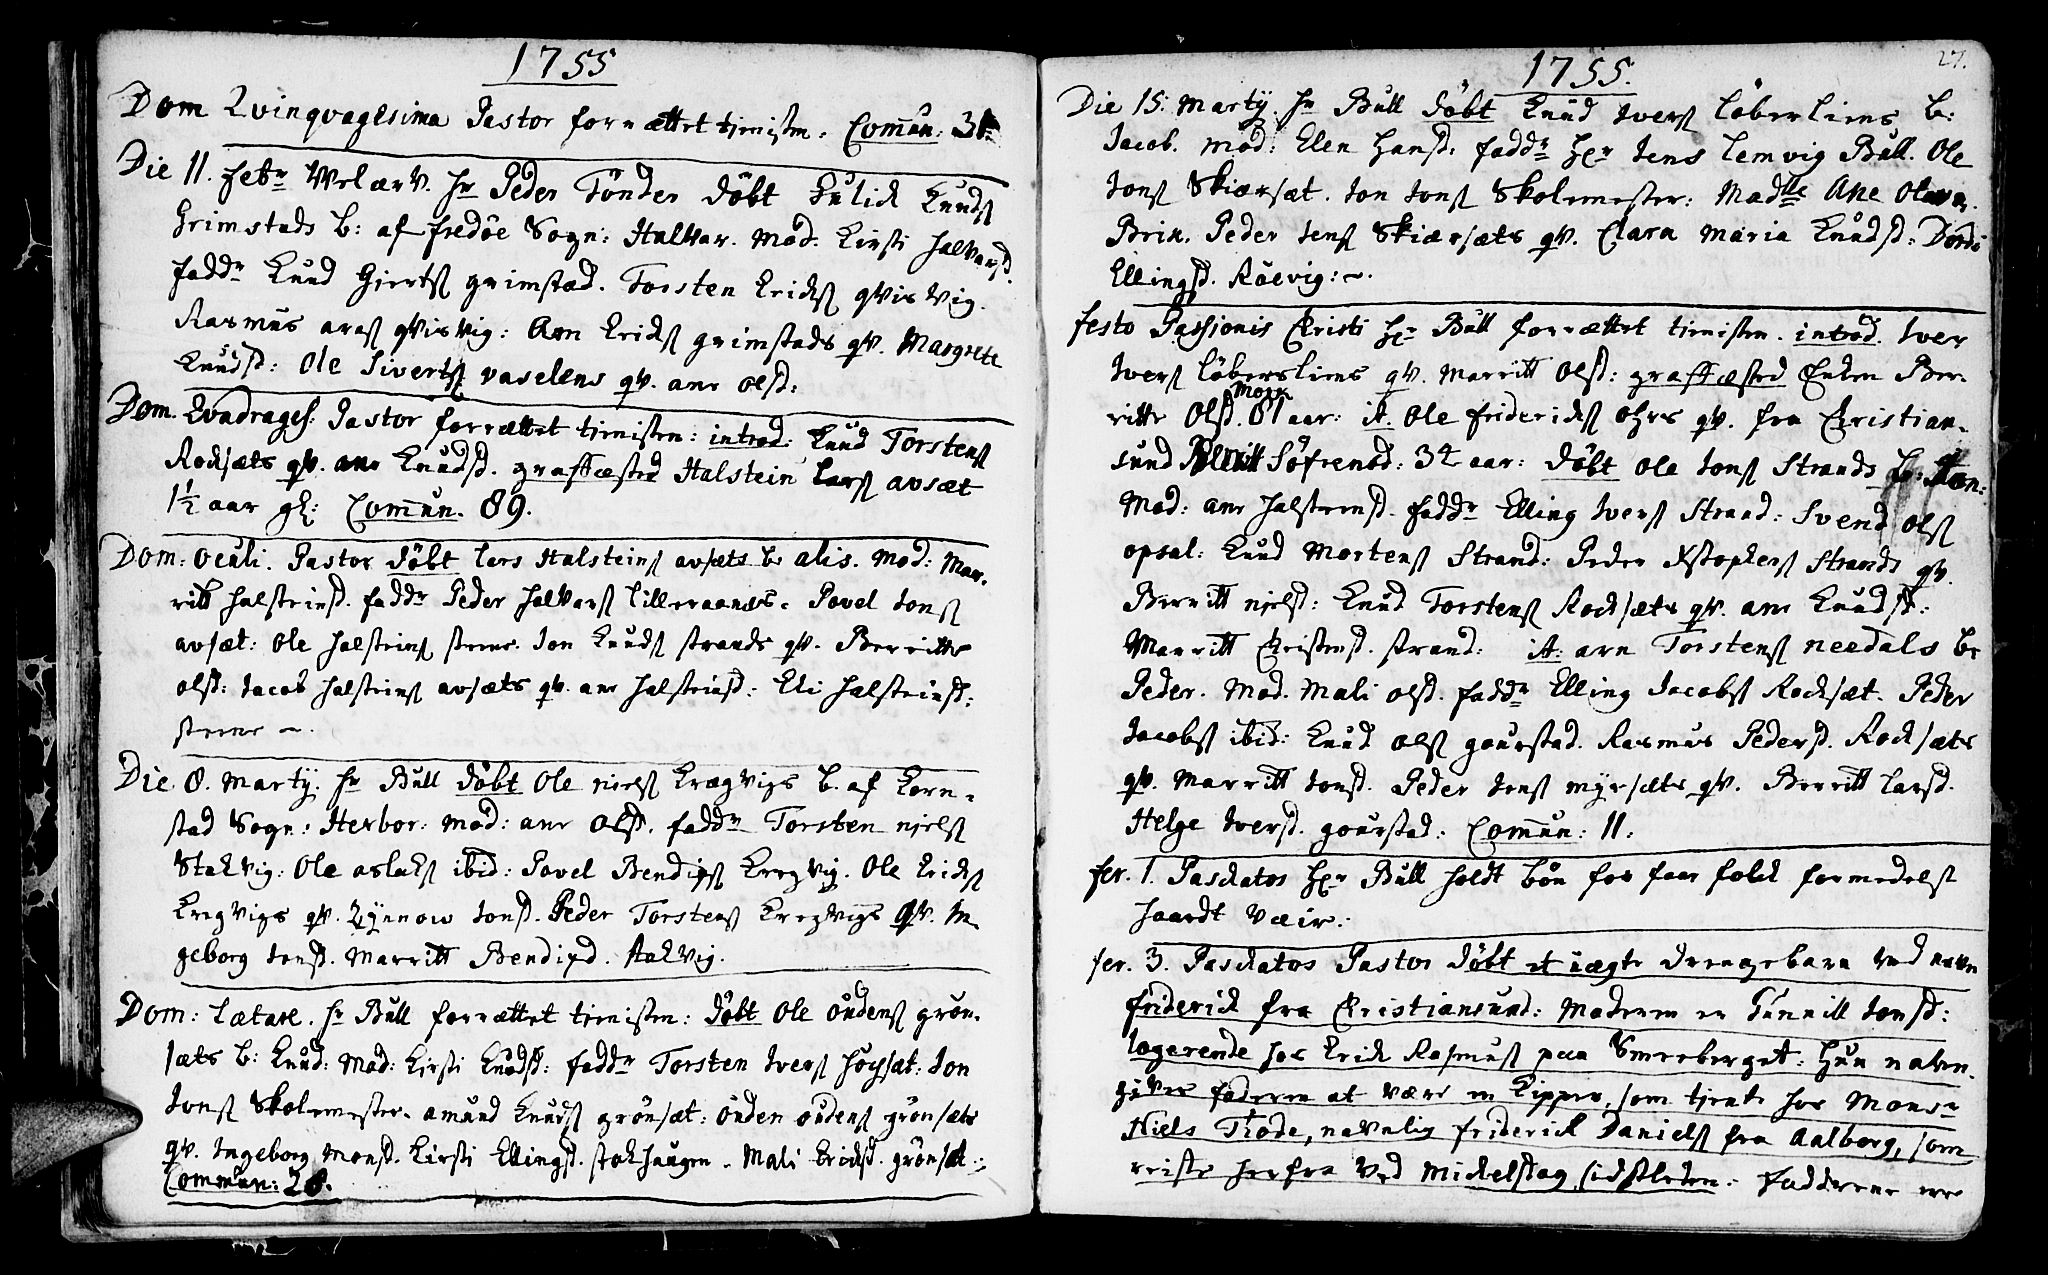 1755
Dom Qvinqvagesima Pastor forrættet tienisten. Comun: 31
Die 11. Febr Velærv. hr Peder Tönder döbt Gulick Knuds
Grimstads b: af Fredöe Sogn: Halvar. Mod. Kirsti Halvarsd.
faddr Knud Giertß grimstad. Torsten Erichß qvisvig.
Rasmus araß qvisvig: Arn Erichß grimstads qv. Margrete
Knudsd: Ole Sivertß vaselens qv. ane olsd:
Dom. Qvadrages: Pastor forrættet tienisten: introd: Knud Torstenß
Rocksæts qv. ane Knudsd. graffæsted Halstein Larß avsæt
1½ aar gl: Comun. 89.
Dom: oculi. Pastor döbt Lars Halsteinß avsæts b alis. Mod: Mar-
ritt halsteinsd. faddr Peder halvarß lilleraanæs. Povel Jonß
avsæt: Ole halsteinß steene. Jon Knudß strands qv. Berritte
olsd: Jacob halsteinß avsæts qv. ane halsteinsd: Eli halsteinsd:
steene ~.
Die 8. Martij. hr Bull döbt Ole nielß Krægvigs b. af Korn-
stad Sogn: Herbor: mod: ane olsd. faddr Torsten nielß
Stakvig: Ole aslakß ibid: Povel Bendixß Kregvig. Ole Erichß
Kregvigs qv. Synnow Jonsd. Peder Torstenß Kregvigs qv. In-
geborg Jonsd. Marritt Bendixd. stakvig.
Dom: Lætare. hr Bull forrættet tienisten: döbt Ole oudenß grön-
sæts b: Knud: Mod: Kirsti Knudsd: faddr Torsten Iverß höysæt: Jon
Jonß Skolemester. amund Knudß grönsæt: ouden oudenß grönsæts
qv. Ingeborg Monsd. Kirsti Ellingsd. stokhaugen. Mali Ericksd. grönsæt:
Commun: 28.
1755.
27.
Die 15. Martij. hr Bull döbt Knud Iverß löberliens b:
Jacob. mod: Elen Hansd: faddr Hr Jens Lemvig Bull. Ole
Jonß Skiærsæt. Jon Jonß Skolemester: Madlle Ane Olava
Brix. Peder Jenß Skiærsæts qv. Clara Maria Knudsd: Dordi
Ellingsd. Röevig: ~.
Festo Passionis Christi Hr Bull forrættet tienisten. introd. Iver
Iverß löbersliens qv. Marritt Olsd: graffæsted Enken Ber-
ritte Olsd. Mork 81 aar: it. Ole Friderichß ohrs qv. fra Christian-
sund Söfrensd: 34 aar: döbt Ole Jonß Strands b:
Mod: ane halsteensd. faddr Elling Iverß Strand: Svend olß
opsal: Knud Mortenß Strand: Peder Xstopherß Strands qv.
Berritt nielsd: Knud Torstenß Rocksæts qv. ane Knudsd:
Marritt Christensd. strand: it: arn Torstenß needals b
Peder. Mod. Mali olsd. faddr Elling Jacobß Rocksæt. Peder
Jacobß ibid: Knud olß gourstad. Rasmus Pedersd. Rocksæts
qv. Marritt Jonsd. Peder Jonß myrsæts qv. Berritt Larsd.
Helge Iversd. gourstad: Comun: 11.
fer. 1. Paschatos Hr Bull holdt bön for faar folck formedelst
haardt væir.
fer. 3. Paschatos Pastor döbt et uægte drengebarn ved navn
friderich fra Christiansund: Moderen er Gunnill Jonsd:
logerende hos Erich Rasmuß paa Smeeberget: Hun navn-
giver faderen at være en Kipper, som tiente hos Monsr
Niels Thode, navnlig friderich Danielß fra Aalborg, som
reiste herfra ved Mickelsdag sidstleden. Fadderne ere